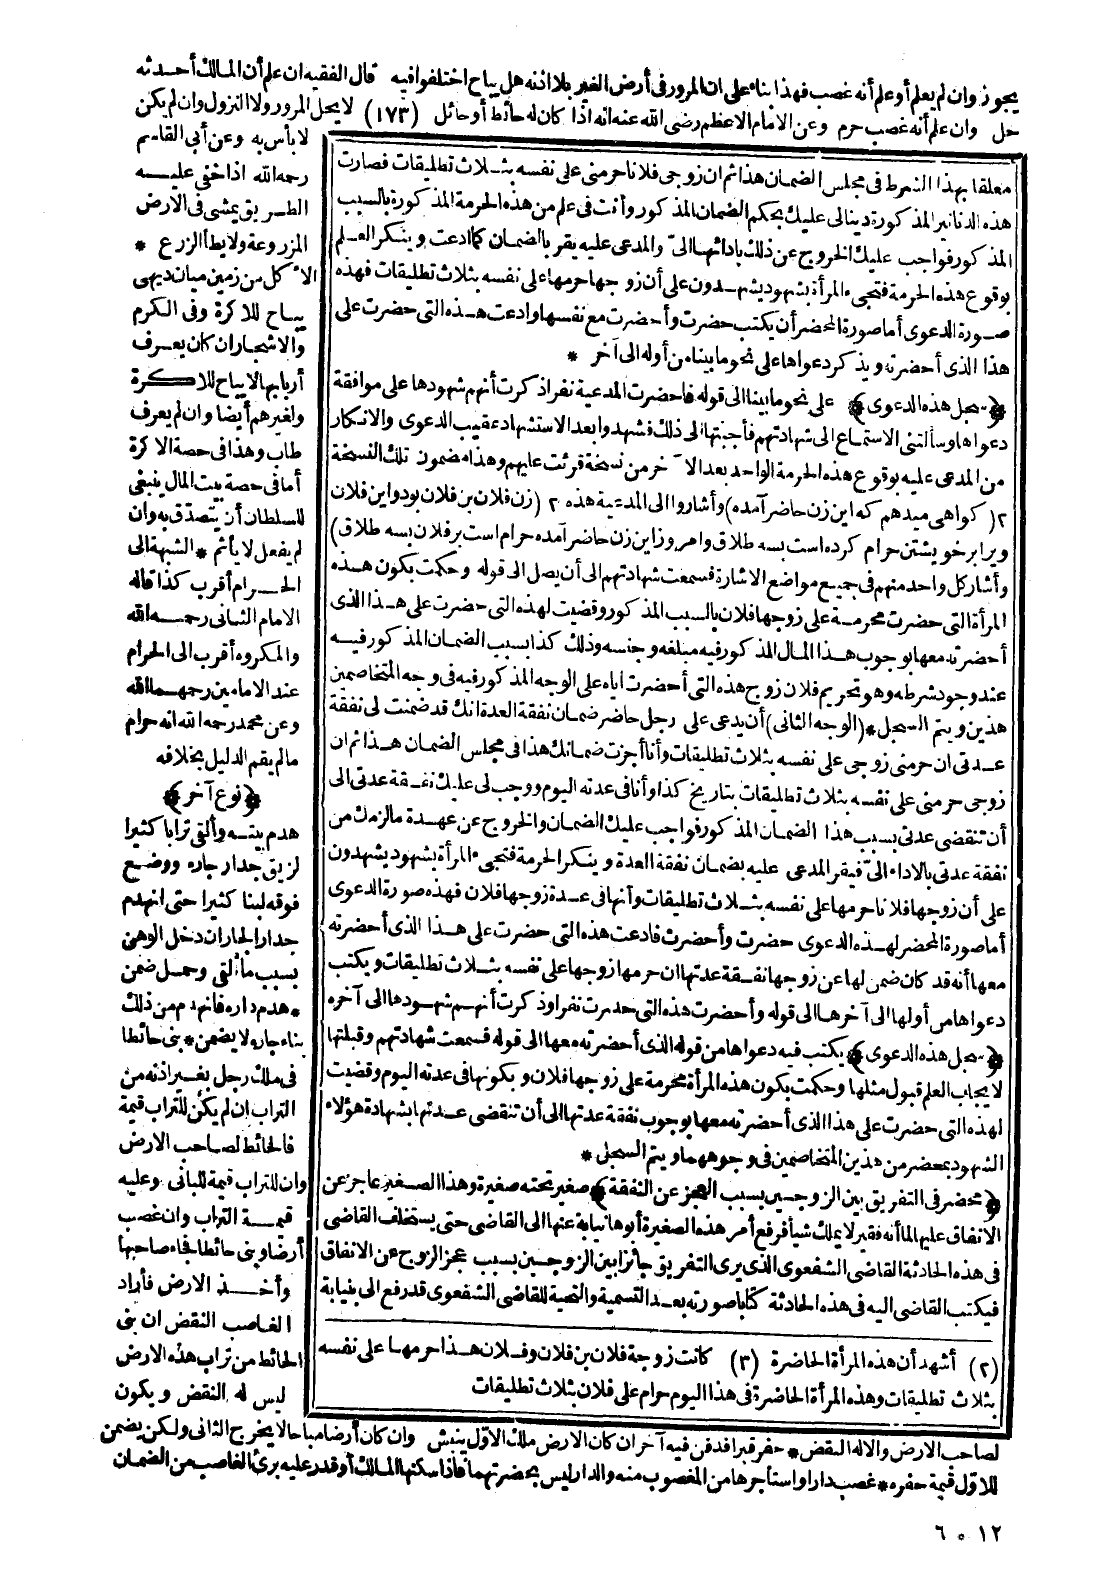 يجوز وان لم يعلم أو علم أنه غصب فهذا بناء على ان المرور فى أرض الغير بلا اذنه هل يباح اختلفوا فيه قال الفقيه ان علم أن المالك أحدثه
حل وان علم أنه غصب حرم وعن الامام الاعظم رضى الله عنه انه اذا كان له حائط أو حائل (١٧٣) لا يحل المرور ولا النزول وان لم يكن
لا بأس به وعن أبى القاسم
رحمه الله اذا خفى عليه
الطريق يمشى فى الارض
المزروعة ولا يطأ الزرع *
الا كل من زمين ميان ديهى
يباح للاكرة وفى الكرم
والاشجار ان كان يعرف
أربابها لا يباح للاكرة
ولغيرهم أيضا وان لم يعرف
طاب وهذا فى حصة الاكرة
أما فى حصة بيت المال ينبغى
للسلطان أن يتصدق به وان
لم يفعل لا يأثم * الشبهة الى
الحرام أقرب كذا قاله
الامام الثانى رحمه الله
والمكروه أقرب الى الحرام
عند الامامين رحمهما الله
وعن محمد رحمه الله انه حرام
مالم يقم الدليل بخلافه
﴿نوع آخر﴾
هدم بيته وألقى ترابا كثيرا
لزيق جدار جاره ووضع
فوقه لبنا كثيرا حتى انهدم
جدار الجار ان دخل الوهن
بسبب ما ألقى وحمل ضمن
* هدم داره فانهدم من ذلك
بناء جاره لا يضمن * بنى حائطا
فى ملك رجل بغير اذنه من
التراب ان لم يكن للتراب قيمة
فالحائط لصاحب الارض
وان للتراب قيمة للبانى وعليه
قيمة التراب وان غصب
أرضا وبنى حائطا فجاء صاحبها
وأخذ الارض فأراد
الغاصب النقض ان بنى
الحائط من تراب هذه الارض
ليس له النقض ويكون
معلقا بهذا الشرط فى مجلس الضمان هذا ثم ان زوجى فلانا حرمنى على نفسه بثلاث تطليقات فصارت
هذه الدنانير المذكورة دينا لى عليك بحكم الضمان المذكور وأنت فى علم من هذه الحرمة المذكورة بالسبب
المذكور فواجب عليك الخروج عن ذلك بادائها الىّ والمدعى عليه يقر بالضمان كما ادعت وينكر العلم
بوقوع هذه الحرمة فتجىء المرأة بشهود يشهدون على أن زوجها حرمها على نفسه بثلاث تطليقات فهذه
صورة الدعوى أما صورة المحضر أن يكتب حضرت وأحضرت مع نفسها وادعت هذه التى حضرت على
هذا الذى أحضرته ويذكر دعواها على نحو ما بينا من أوله الى آخر *
﴿سجل هذه الدعوى﴾ على نحو ما بينا الى قوله فاحضرت المدعية نفرا ذكرت أنهم شهودها على موافقة
دعواها وسألتنى الاستماع الى شهادتهم فأجبتها الى ذلك فشهدوا بعد الاستشهاد عقيب الدعوى والانكار
من المدعى عليه بوقوع هذه الحرمة الواحد بعد الآخر من نسخة قرئت عليهم وهذا مضمون تلك النسخة
٢ (كواهى ميدهم كه اين زن حاضر آمده) وأشاروا الى المدعية هذه ٢ (زن فلان بن فلان بود و اين فلان
ويرا برخويشتن حرام كرده است بسه طلاق وامروز اين زن حاضر آمده حرام است بر فلان بسه طلاق)
وأشار كل واحد منهم فى جميع مواضع الاشارة فسمعت شهادتهم الى أن يصل الى قوله وحكمت بكون هذه
المرأة التى حضرت محرمة على زوجها فلان بالسبب المذكور وقضيت لهذه التى حضرت على هذا الذى
أحضرته معها بوجوب هذا المال المذكور فيه مبلغه وجنسه وذلك كذا بسبب الضمان المذكور فيه
عند وجود شرطه وهو تحريم فلان زوج هذه التى أحضرت اياه على الوجه المذكور فيه فى وجه المتخاصمين
هذين ويتم السجل * (الوجه الثانى) أن يدعى على رجل حاضر ضمان نفقة العدة انك قد ضمنت لى نفقة
عدتى ان حرمنى زوجى على نفسه بثلاث تطليقات وأنا أجزت ضمانك هذا فى مجلس الضمان هذا ثم ان
زوجى حرمنى على نفسه بثلاث تطليقات بتاريخ كذا وأنا فى عدته اليوم ووجب لى عليك نفقة عدتى الى
أن تنقضى عدتى بسبب هذا الضمان المذكور فواجب عليك الضمان والخروج عن عهدة ما لزمك من
نفقة عدتى بالاداء الىّ فيقر المدعى عليه بضمان نفقة العدة وينكر الحرمة فتجىء المرأة بشهود يشهدون
على أن زوجها فلانا حرمها على نفسه بثلاث تطليقات وأنها فى عدة زوجها فلان فهذه صورة الدعوى
أما صورة المحضر لهذه الدعوى حضرت وأحضرت فادعت هذه التى حضرت على هذا الذى أحضرته
معها أنه قد كان ضمن لها عن زوجها نفقة عدتها ان حرمها زوجها على نفسه بثلاث تطليقات ويكتب
دعواها من أولها الى آخرها الى قوله وأحضرت هذه التى حضرت نفرا وذكرت أنهم شهودها الى آخره
﴿سجل هذه الدعوى﴾ يكتب فيه دعواها من قوله الذى أحضرته معها الى قوله فسمعت شهادتهم وقبلتها
لايجاب العلم قبول مثلها وحكمت بكون هذه المرأة محرمة على زوجها فلان وبكونها فى عدته اليوم وقضيت
لهذه التى حضرت على هذا الذى أحضرته معها بوجوب نفقة عدتها الى أن تنقضى عدتها بشهادة هؤلاء
الشهود بمحضر من هذين المتخاصمين فى وجوههما ويتم السجل *
﴿محضر فى التفريق بين الزوجين بسبب العجز عن النفقة﴾ صغير تحته صغيرة وهذا الصغير عاجز عن
الانفاق عليها لما أنه فقير لا يملك شيأ فرفع أمر هذه الصغيرة أبوها نيابة عنها الى القاضى حتى يستخلف القاضى
فى هذه الحادثة القاضى الشفعوى الذى يرى التفريق جائزا بين الزوجين بسبب عجز الزوج عن الانفاق
فيكتب القاضى اليه فى هذه الحادثة كتابا صورته بعد التسمية والتحية للقاضى الشفعوى قد رفع الى بنيابة
(٢) أشهد أن هذه المرأة الحاضرة (٣) كانت زوجة فلان بن فلان وفلان هذا حرمها على نفسه
بثلاث تطليقات وهذه المرأة الحاضرة فى هذا اليوم حرام على فلان بثلاث تطليقات
لصاحب الارض والا له النقض * حفر قبرا فدفن فيه آخر ان كان الارض ملك الاوّل ينبش وان كان أرضا مباحا لا يخرج الثانى ولكن يضمن
للاوّل قيمة حفره * غصب دارا واستأجرها من المغصوب منه والدار ليس بحضرتهما فاذا سكنها المالك أو قدر عليه برئ الغاصب من الضمان
٦ ٥ ١٢